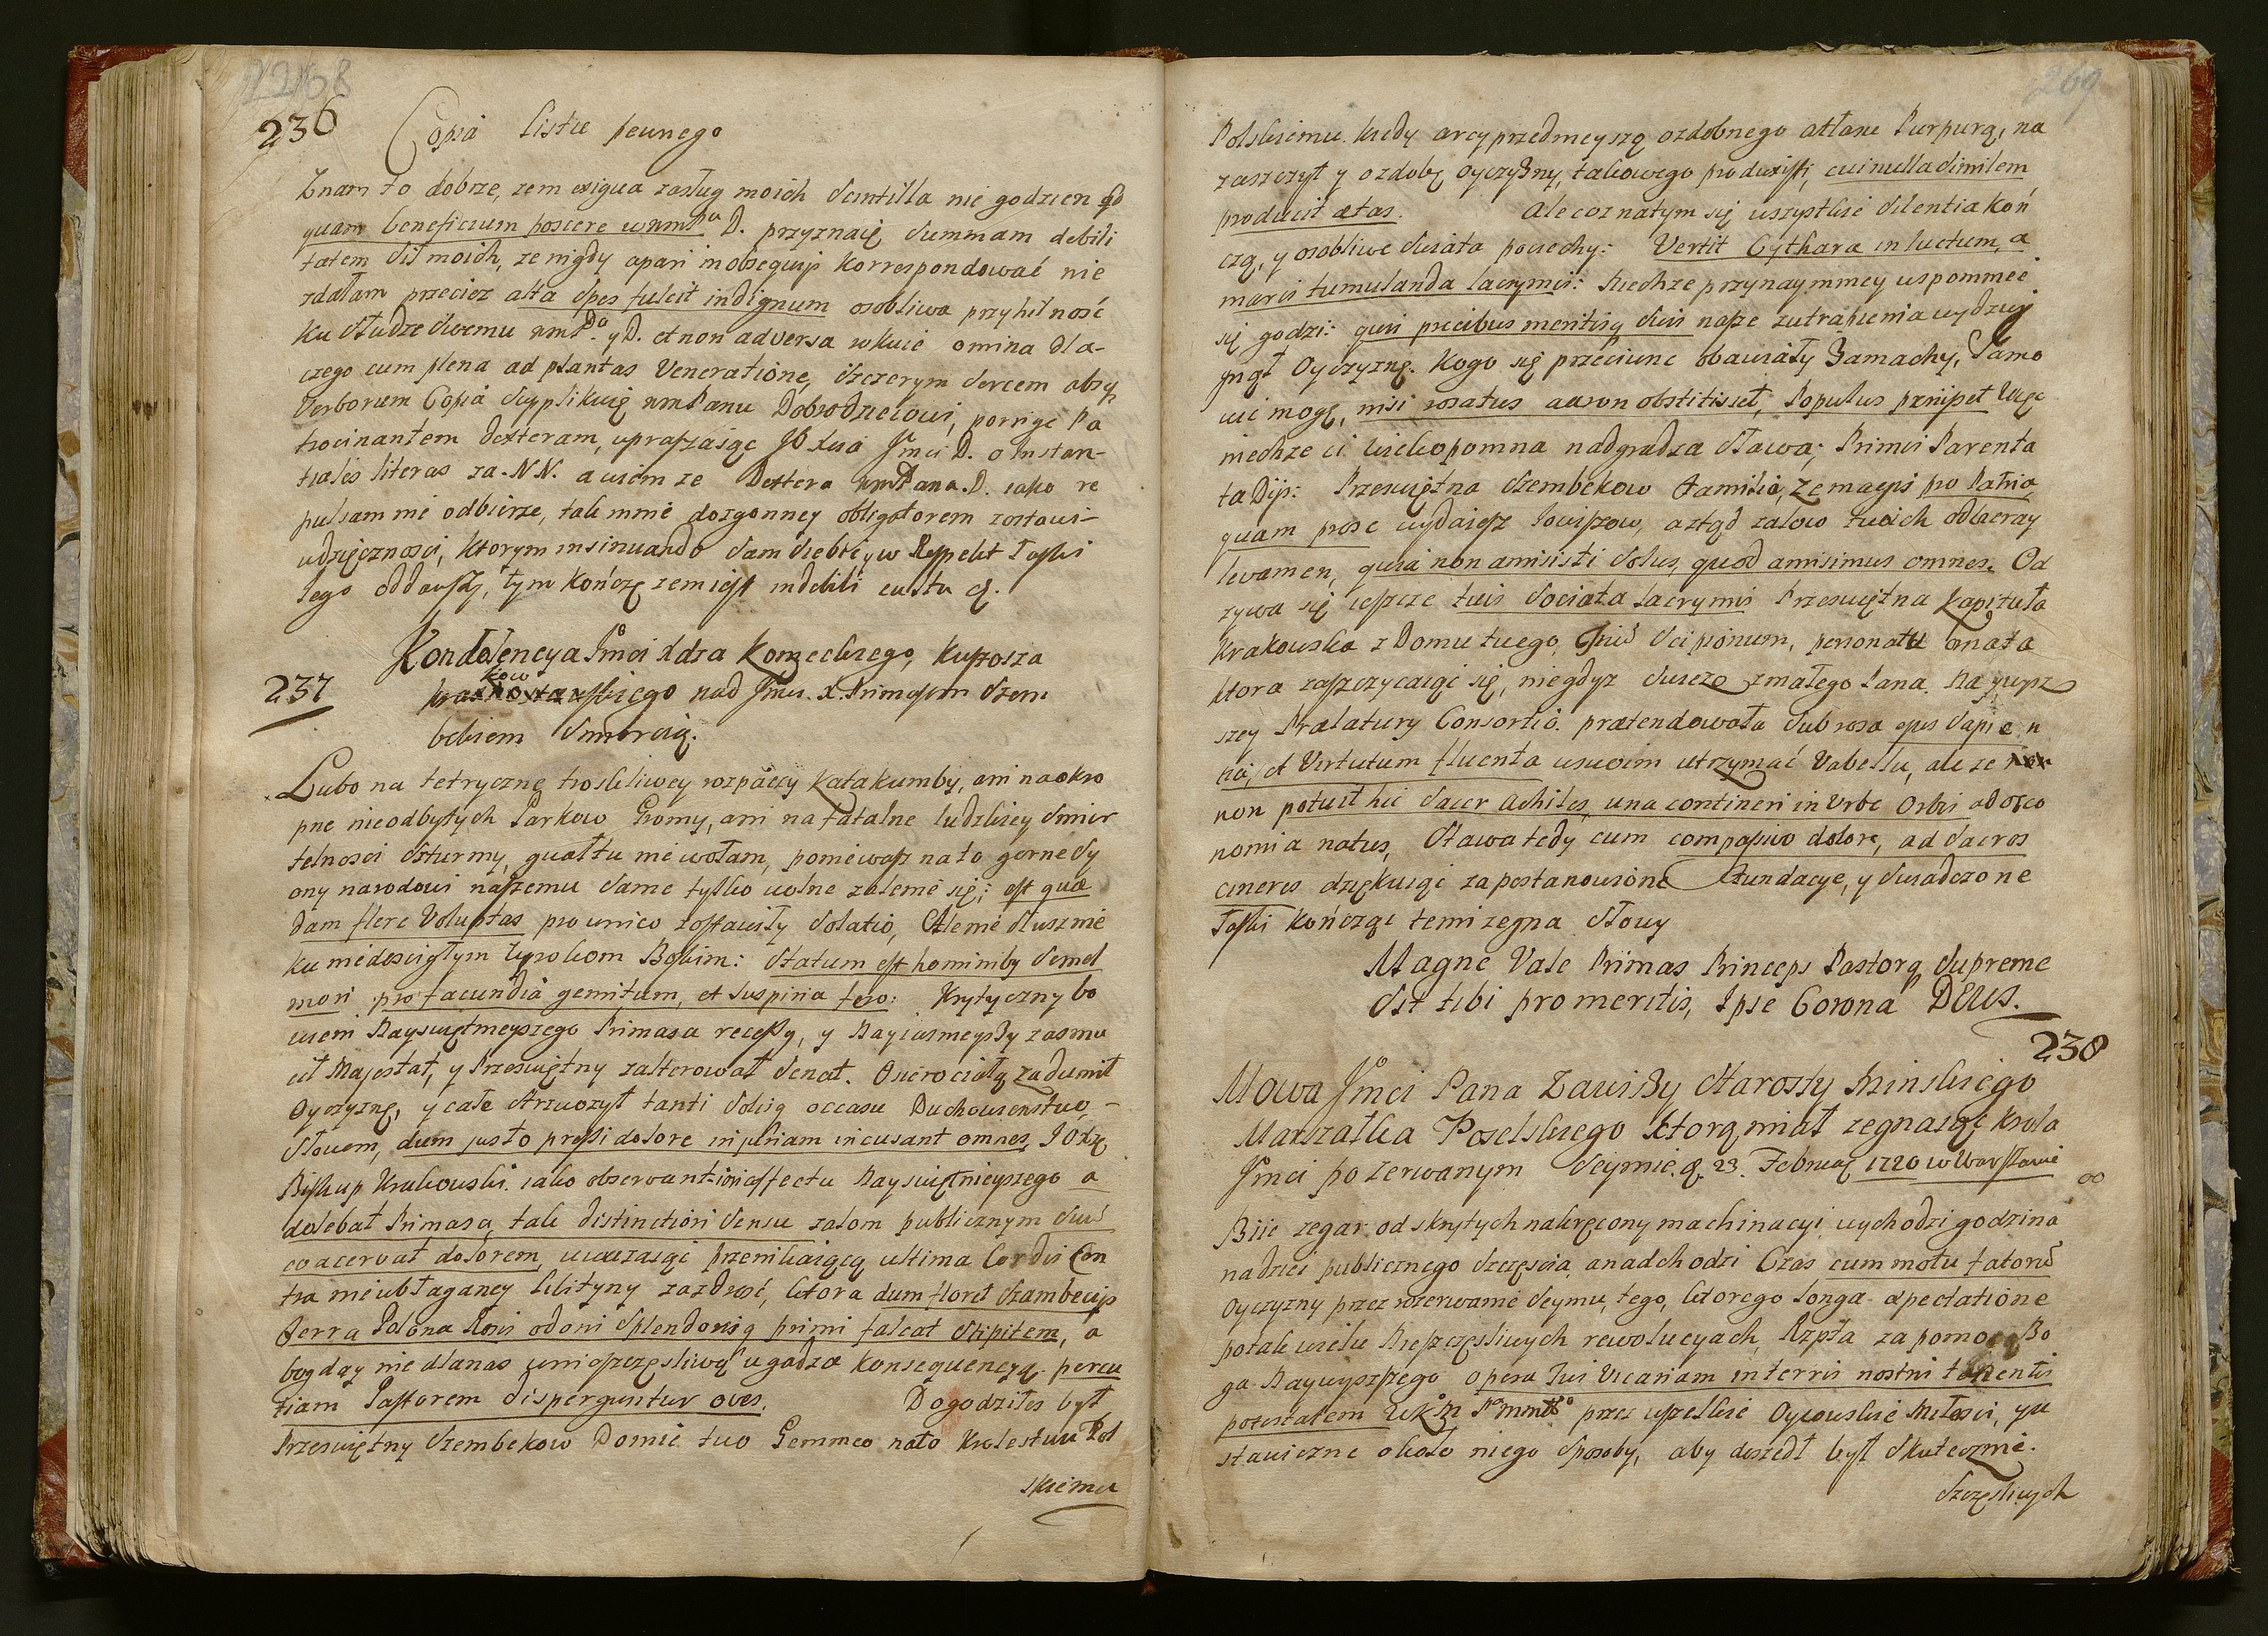 268
236
Copia listu pewnego
Znam to dobrze, zem exigua zasług moich Scintilla nie godzien qd
quam beneficium poscere wmPa D. przyznaię Summam debili
tatem Sił moich, ze nigdy apari in obsequijs korrespondować nie
zdałam przeciez alta Spes fulcit indignum osobliwa przyhilność
ku Słudze Swemu wmPa. y D. et non adversa wkuie omina dla-
czego cum plena ad plantas Veneratione, Szczerym Sercem
Verborum Copia Supplikuię wmPanu Dobrodzieiowi, porrige Pa
trocinantem dexteram, upraszaiąc Jmci D. o Instan-
tiales literas za N.N. a wiem ze Dextera wmPana. D. iako re
pulsam nie odbierze, tak mnie dozgonney obligatorem zostawi-
wdzięcznosci, ktorym insinuando Sam Siebie, y w Respekt Łaski
Iego oddawszy, tym kończę zem iest indebili cultu &.
237
Kondolencya Jmci Xdza Komeckiego, kustosza
kow
skiego nad Jmci. X. Primasem Szem
bekiem Smiercią.
Lubo na tetryczne troskliwey rozpaczy katakumby, ani na okro
pne nieodbytych Parkow Gromy, ani na fatalne ludzkiey Smier
telnosci Szturmy, gwałtu nie wołam, poniewasz na to gorne Sy
ony narodowi naszemu Same tylko wolne zalenie się; est quæ
dam flere Voluptas pro unico zostawiły Solatio, Ale nie Słusznie
ku niedoscigłym wyrokom Boskim: Statum est hominibq Semel
mori pro facundiâ gemitum, et Suspiria fero: Krytyczny bo
wiem Nayswiętnieyszego Primasa recessq, y Nayiasnieyszy zasmu
cił Majestat, y Przeswiętny zalterował Senat. Osierociałą zadumił
Oyczyznę, y całe Strwozył tanti Solisq occasu Duchowienstwo-
Słowem, dum justo pressi dolore injuriam incusant omnes, J Oxq
Biskup Krakowski. iako observantiori affectu Nayswiętnieyszego a
dolebat Primasa, tak distinctiori Sensu zalom publicznym Suũ
coacervat dolorem, uwazaiąc przenikaiącą ultima Cordis Con
tra nieubłaganey Libityny zazdrość, ktora dum floret Szambecijs
Terra Polona Rosis odoni Splendorisq primi falcat Stipitem, a
bogday nie dla nas nieszczęsliwą ugadza konsequencyą percu
tiam Pastorem disperguntur oves. Dogodziłes był
Przeswiętny Szembekow Domie two Gemmeo nato Krolestwu Pol
skiemu
269
Polskiemu. kiedy arcyprzednieyszą ozdobnego atłasu Purpurą, na
zaszczyt y ozdobę oyczyzny, takowego produxisti, cui nulla Similem
producit ætas. Ale coz natym się wszystkie Silentia Koń
czą, y osobliwe Swiata pociechy: Vertit Cythara in luctum, a
maris tumulanda lacrymis: Niechze przynaymniey wspomniec
się godzi: quis precibus meritisq Suis nasze utrapienia wydzwi
gnął Oyczyznę. Kogo się przeciwne obawiały Zamachy, Samo
wie mogę, nisi rosatus aaron obstitisset, Populus periisset Uge
niechze ci wiekopomna nadgradza Sława; Primis Parenta
ta Dijs: Przeswiętna Szembekow Familia, Ze masz po Patria
quam prose wydaiesz Towiszow, a ztąd zalow twoich odbieray
levamen, quia non amisisti Solus, quod amisimus omnes. Od
zywa się ieszcze tuis Sociata Lacrymis Przeswiętna Kapituła
Krakowska z Domu twego, Scipionum, personatu ornata
ktora zaszczycaiąc się, niegdysz Swiezo zmałego Pana. Naywyz
szey Prælatury Consortio. prætendowała Sub rosa opes Sapien
tiæ, et Virtutum fluenta uswoim utrzymać Vabellu, ale ze
non potuit hic Sacer Achiles, una contineri in Urbe Orbis ad osco
nomia natus, Stawa tedy cum compassivo dolore, ad Sacros
cineres dziękuiąc za postanowione Fundacye, y Swiadczone
Łaski kończąc temi zegna Słowy
Magne Vale Primas Princeps Pastorq Supreme
Sit tibi pro meritis, Ipse Corona DEUS.
238
Mowa Jmci Pana Zawiszy Starosty Minskiego
Marszałka Poselskiego ktorą miał zegnaiąc Krola
Jmci po zerwanym Seymie. d. 23. Februaq 1720 w Warszawie
Biie zegar od skrytych nakręcony machinacyi, wychodzi godzina
nadziei publicznego Szczęscia, a nadchodzi Czas cum motu fatorũ
Oyczyzny przez rozerwanie Seymu, tego, ktorego longa expectatione
po tak wielu Nieszczęsliwych rewolucyach, Rzpta za pomocą Bo
ga Naywyszszego opera Sui Vicariam in terris nostris tenentis
potestatem WKM Pa mmtto przez wszelkie Oycowskie Miłosci, y u
stawiczne około niego Sposoby, aby doszedł był Skutecznie.
Szczęsliwych